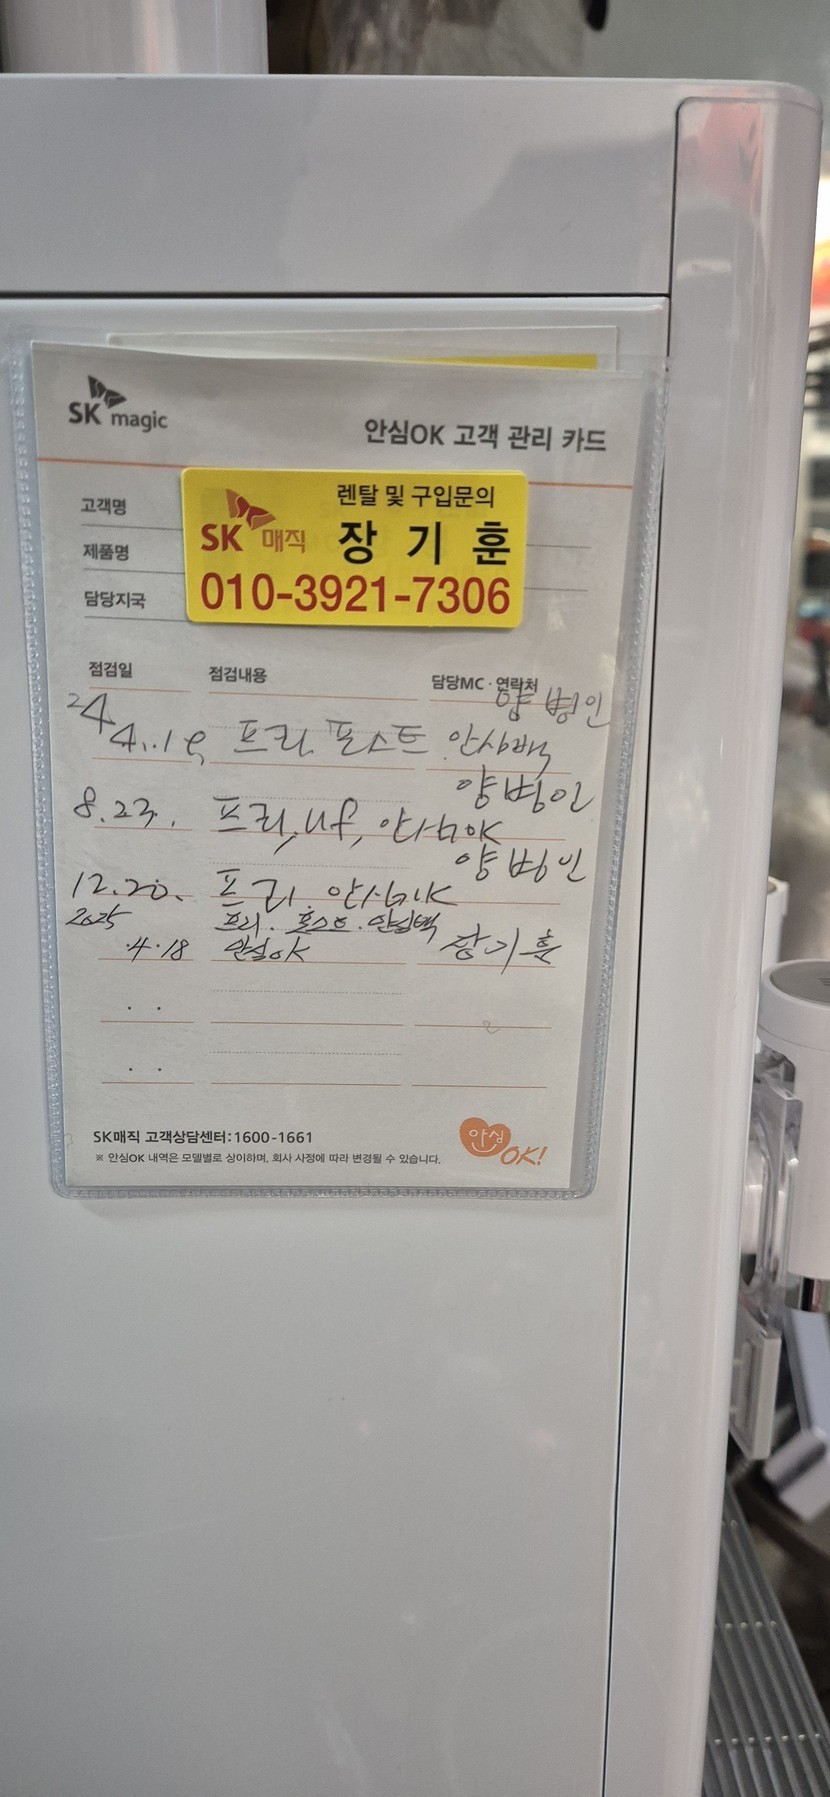 SK magic
안심OK 고객 관리 카드
고객명
제품명
담당지국
렌탈 및 구입문의
SK 매직 장 기 훈
010-3921-7306
점검일 점검내용 담당MC · 연락처
양병인
24 4.19 프리 포스트 안심백
양병인
8.23. 프리, uf, 안심OK
양병인
12.20. 프리 안심OK
2025 프리. 포스트. 안심백
4.18 안심OK 장기훈
SK매직 고객상담센터:1600-1661
안심 OK!
※ 안심OK 내역은 모델별로 상이하며, 회사 사정에 따라 변경될 수 있습니다.